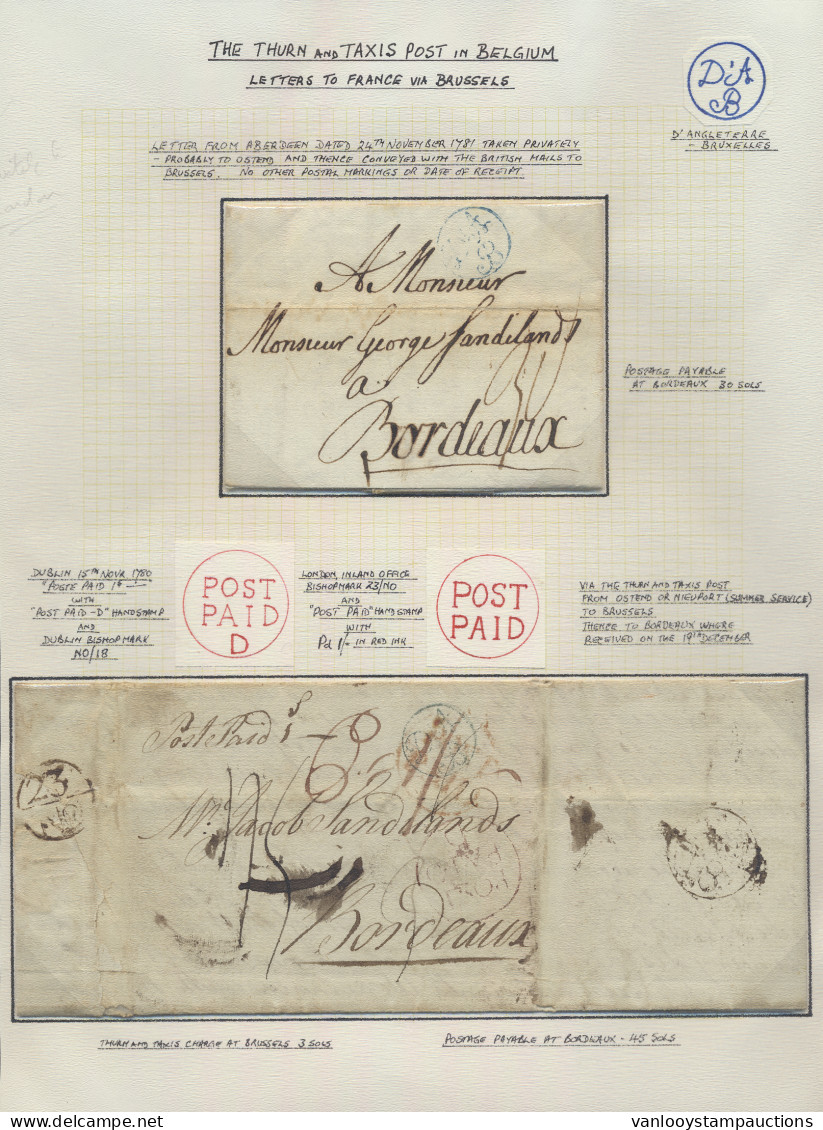 THE THURN AND TAXIS POST IN BELGIUM
LETTERS TO FRANCE VIA BRUSSELS
D'A
B
D'ANGLETERRE
- BRUXELLES
LETTER FROM ABERDEEN DATED 24TH NOVEMBER 1781 TAKEN PRIVATELY
- PROBABLY TO OSTEND AND THENCE CONVEYED WITH THE BRITISH MAILS TO
BRUSSELS. NO OTHER POSTAL MARKINGS OR DATE OF RECEIPT.
A Monsieur
Monsieur George Sandilands
a
Bordeaux
POSTAGE PAYABLE
AT BORDEAUX 30 SOLS
DUBLIN 15TH NOVR 1780
"POSTE PAID 1s
WITH
"POST PAID-D" HANDSTAMP
AND
DUBLIN BISHOPMARK
NO/18
POST
PAID
D
LONDON, INLAND OFFICE
BISHOPMARK 23/NO
AND
"POST PAID" HANDSTAMP
WITH
Pd 1/- IN RED INK
POST
PAID
VIA THE THURN AND TAXIS POST
FROM OSTEND OR NIEUPORT (SUMMER SERVICE)
TO BRUSSELS
THENCE TO BORDEAUX WHERE
RECEIVED ON THE 19TH DECEMBER
Poste Paid 1s
23
NO
Mr. Jacob Sandilands
Bordeaux
THURN AND TAXIS CHARGE AT BRUSSELS 3 SOLS
POSTAGE PAYABLE AT BORDEAUX - 45 SOLS
vanlooystampauctions